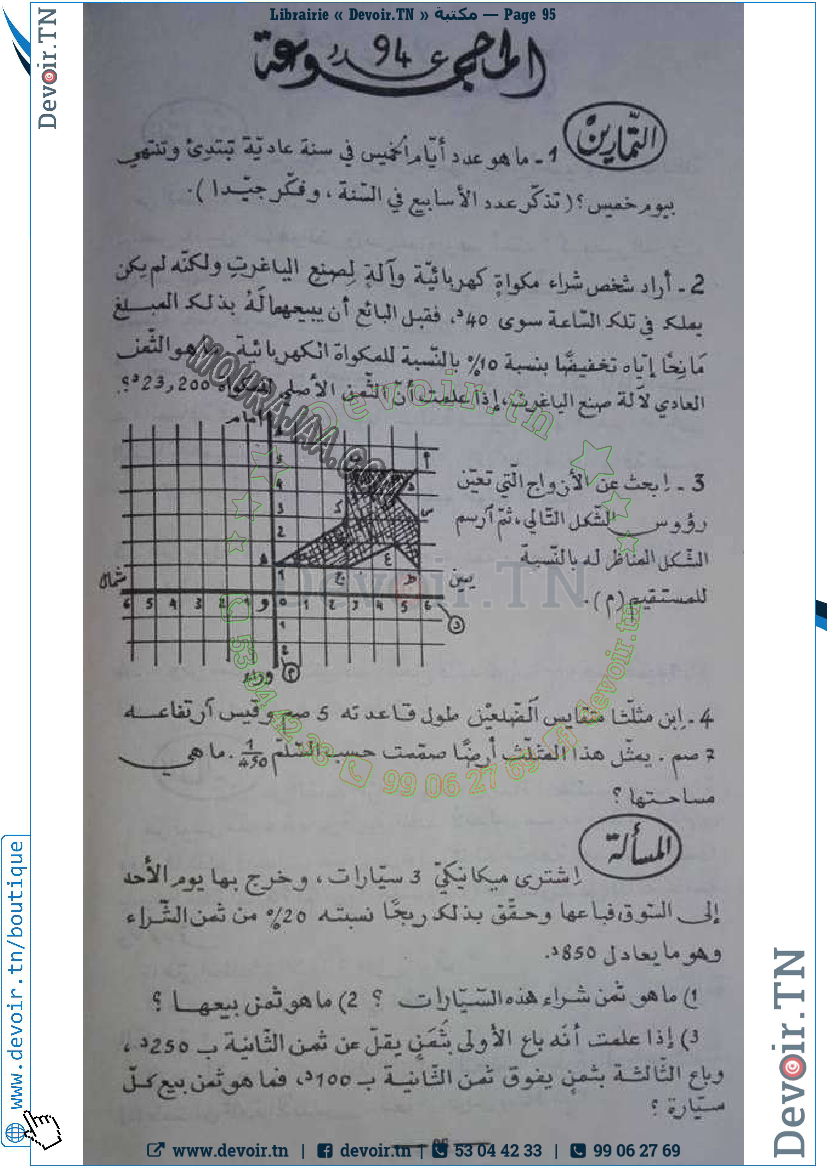 Librairie « Devoir.TN » مكتبة — Page 95
المجموعة عدد 94
التّمارين
1 ـ ما هو عدد أيّام الخميس في سنة عاديّة تبتدئ وتنتهي
بيوم خميس؟ (تذكّر عدد الأسابيع في السّنة، وفكّر جيّدا).
2 ـ أراد شخص شراء مكواةٍ كهربائيّة وآلةٍ لِصنع الياغرت ولكنّه لم يكن
يملك في تلك السّاعة سوى 40د، فقبل البائع أن يبيعهما لهُ بذلك المبلغ
مَانِحًا إيّاه تخفيضًا بنسبة 10% بالنّسبة للمكواة الكهربائية. ما هو الثّمن
العادي لآلة صنع الياغرت، إذا علمت أنّ الثّمن الأصلي للمكواة 23,200د؟
3 ـ اِبحث عن الأزواج الّتي تعيّن
رؤوس الشّكل التّالي، ثمّ اُرسم
الشّكل المناظر له بالنّسبة
للمستقيم (م).
أمام
شمال
يمين
وراء
6 5 4 3 2 1 0 1 2 3 4 5 6
4 ـ اِبن مثلّثا متقايس الضّلعيْن طول قاعدته 5 صم وقيس اُرتفاعه
7 صم. يمثّل هذا المثلّث أرضًا صمّمت حسب السّلّم 1/450. ما هي
مساحتها؟
المسألة
اِشترى ميكانيكيّ 3 سيّارات، وخرج بها يوم الأحد
إلى السّوق فباعها وحقّق بذلك ربحًا نسبته 20% من ثمن الشّراء
وهو ما يعادل 850د.
1) ما هو ثمن شراء هذه السّيّارات؟ 2) ما هو ثمن بيعها؟
3) إذا علمت أنّه باع الأولى بثَمَنٍ يقلّ عن ثمن الثّانية ب 250د،
وباع الثّالثة بثمنٍ يفوق ثمن الثّانية ب 100د، فما هو ثمن بيع كلّ
سيّارة؟
MOURAJAA.COM
Devoir.tn
Devoir.TN
53 04 42 33 99 06 27 69 devoir.tn
Devoir.TN
www.devoir.tn/boutique
Devoir.TN
www.devoir.tn | devoir.tn | 53 04 42 33 | 99 06 27 69